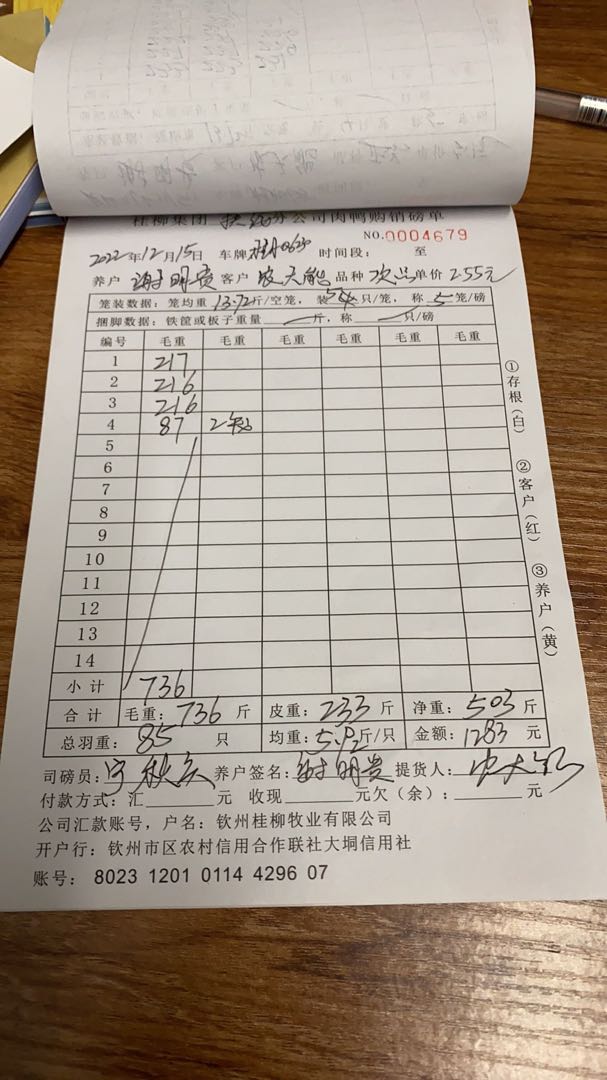 桂柳集团 分公司肉鸭购销磅单
NO.0004679
2022年12月15日 车牌 0630 时间段： 至
养户 谢明贵 客户 农天能 品种 次品 单价 2.55元
笼装数据：笼均重 13.72斤/空笼，装 5 只/笼，称 5 笼/磅
捆脚数据：铁筐或板子重量 — 斤，称 — 只/磅
编号 毛重 毛重 毛重 毛重 毛重
1 217
2 216
3 216
4 87 2
5
6
7
8
9
10
11
12
13
14
小计 736
合计 毛重：736 斤 皮重：233 斤 净重：503 斤
总羽重：85 只 均重：5.92斤/只 金额：1283 元
司磅员： 养户签名：谢明贵 提货人：
付款方式：汇 元 收现 元欠（余）： 元
公司汇款账号，户名：钦州桂柳牧业有限公司
开户行：钦州市区农村信用合作联社大垌信用社
账号： 8023 1201 0114 4296 07
①存根（白）
②客户（红）
③养户（黄）